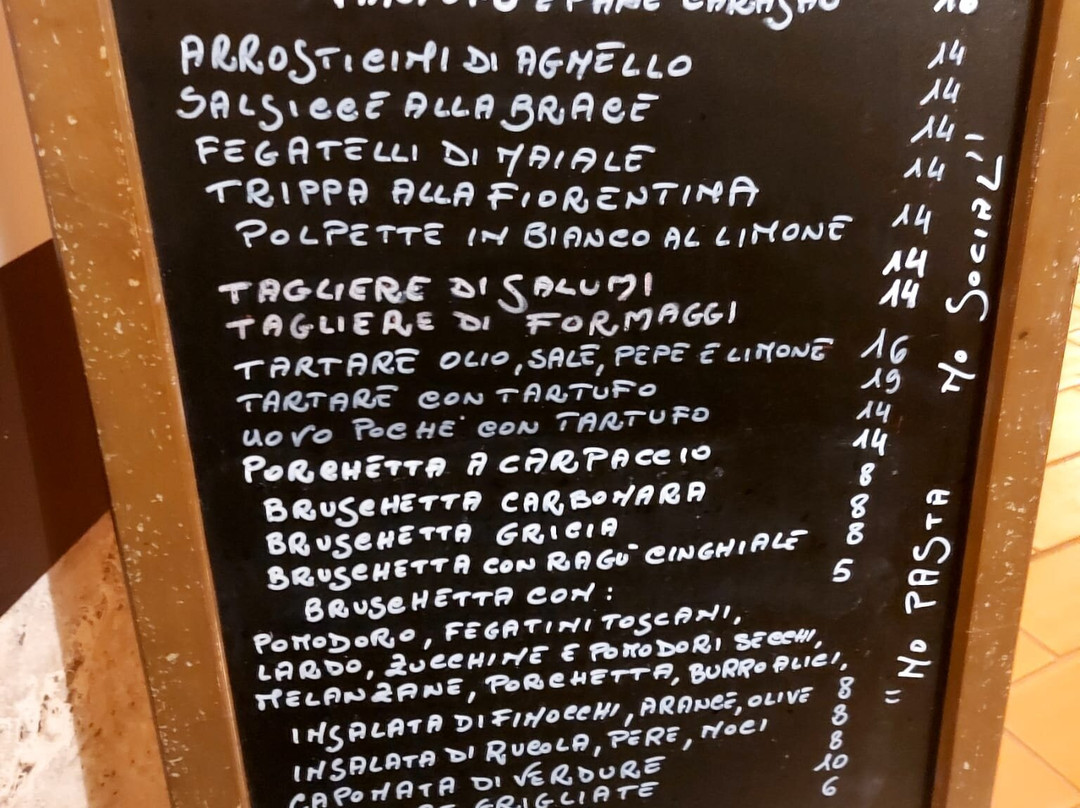 E PANE CARASAU
ARROSTICINI DI AGNELLO 14
SALSICCE ALLA BRACE 14
FEGATELLI DI MAIALE 14
TRIPPA ALLA FIORENTINA 14
POLPETTE IN BIANCO AL LIMONE 14
TAGLIERE DI SALUMI 14
TAGLIERE DI FORMAGGI 14
TARTARE OLIO, SALE, PEPE E LIMONE 16
TARTARE CON TARTUFO 19
UOVO POCHE' CON TARTUFO 14
PORCHETTA A CARPACCIO 14
BRUSCHETTA CARBONARA 8
BRUSCHETTA GRICIA 8
BRUSCHETTA CON RAGU' CINGHIALE 8
BRUSCHETTA CON: 5
POMODORO, FEGATINI TOSCANI,
LARDO, ZUCCHINE E POMODORI SECCHI,
MELANZANE, PORCHETTA, BURRO ALICI,
INSALATA DI FINOCCHI, ARANCE, OLIVE 8
INSALATA DI RUCOLA, PERE, NOCI 8
CAPONATA DI VERDURE 8
GRIGLIATE 10
6
"NO PASTA NO SOCIAL"